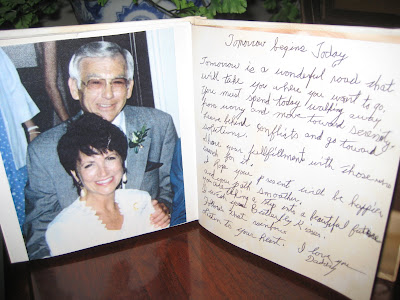 Tomorrow begins Today
Tomorrow is a wonderful road that
will take you where you want to go.
You must spend today walking away
from worry and move toward serenity,
leave behind conflicts and go toward
solutions.
Share your fulfillment with those who
wish for it.
I hope your Present will be happier
and your path smoother,
you are taking a step into a beautiful future
I wish you Butterfly Kisses.
Follow that rainbow
Listen to your heart.
I love you